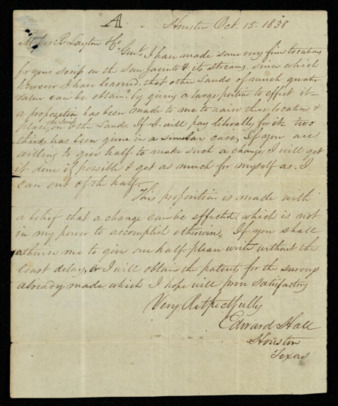 A
Houston Oct. 15. 1838
Gent. I have made some very fine locations
for your scrip on the San Jacinto & its streams, since which
however I have learned, that other Lands of much greater
value can be obtained by giving a large portion to effect it
a proposition has been made to me to raise these locations &
place, on other Lands If I will pay liberally for it two
thirds has been given in a similar case, If you are
willing to give half to make such a change, I will get
it done if possible & get as much for myself as I
can out of the half
This proposition is made with
a belief that a change can be effected which is not
in my power to accomplish otherwise, If you shall
authorise me to give one half please write without the
least delay, & I will obtain the patents for the surveys
already made which I hope will prove satisfactory
Very Respectfully
Edward Hall
Houston
Texas